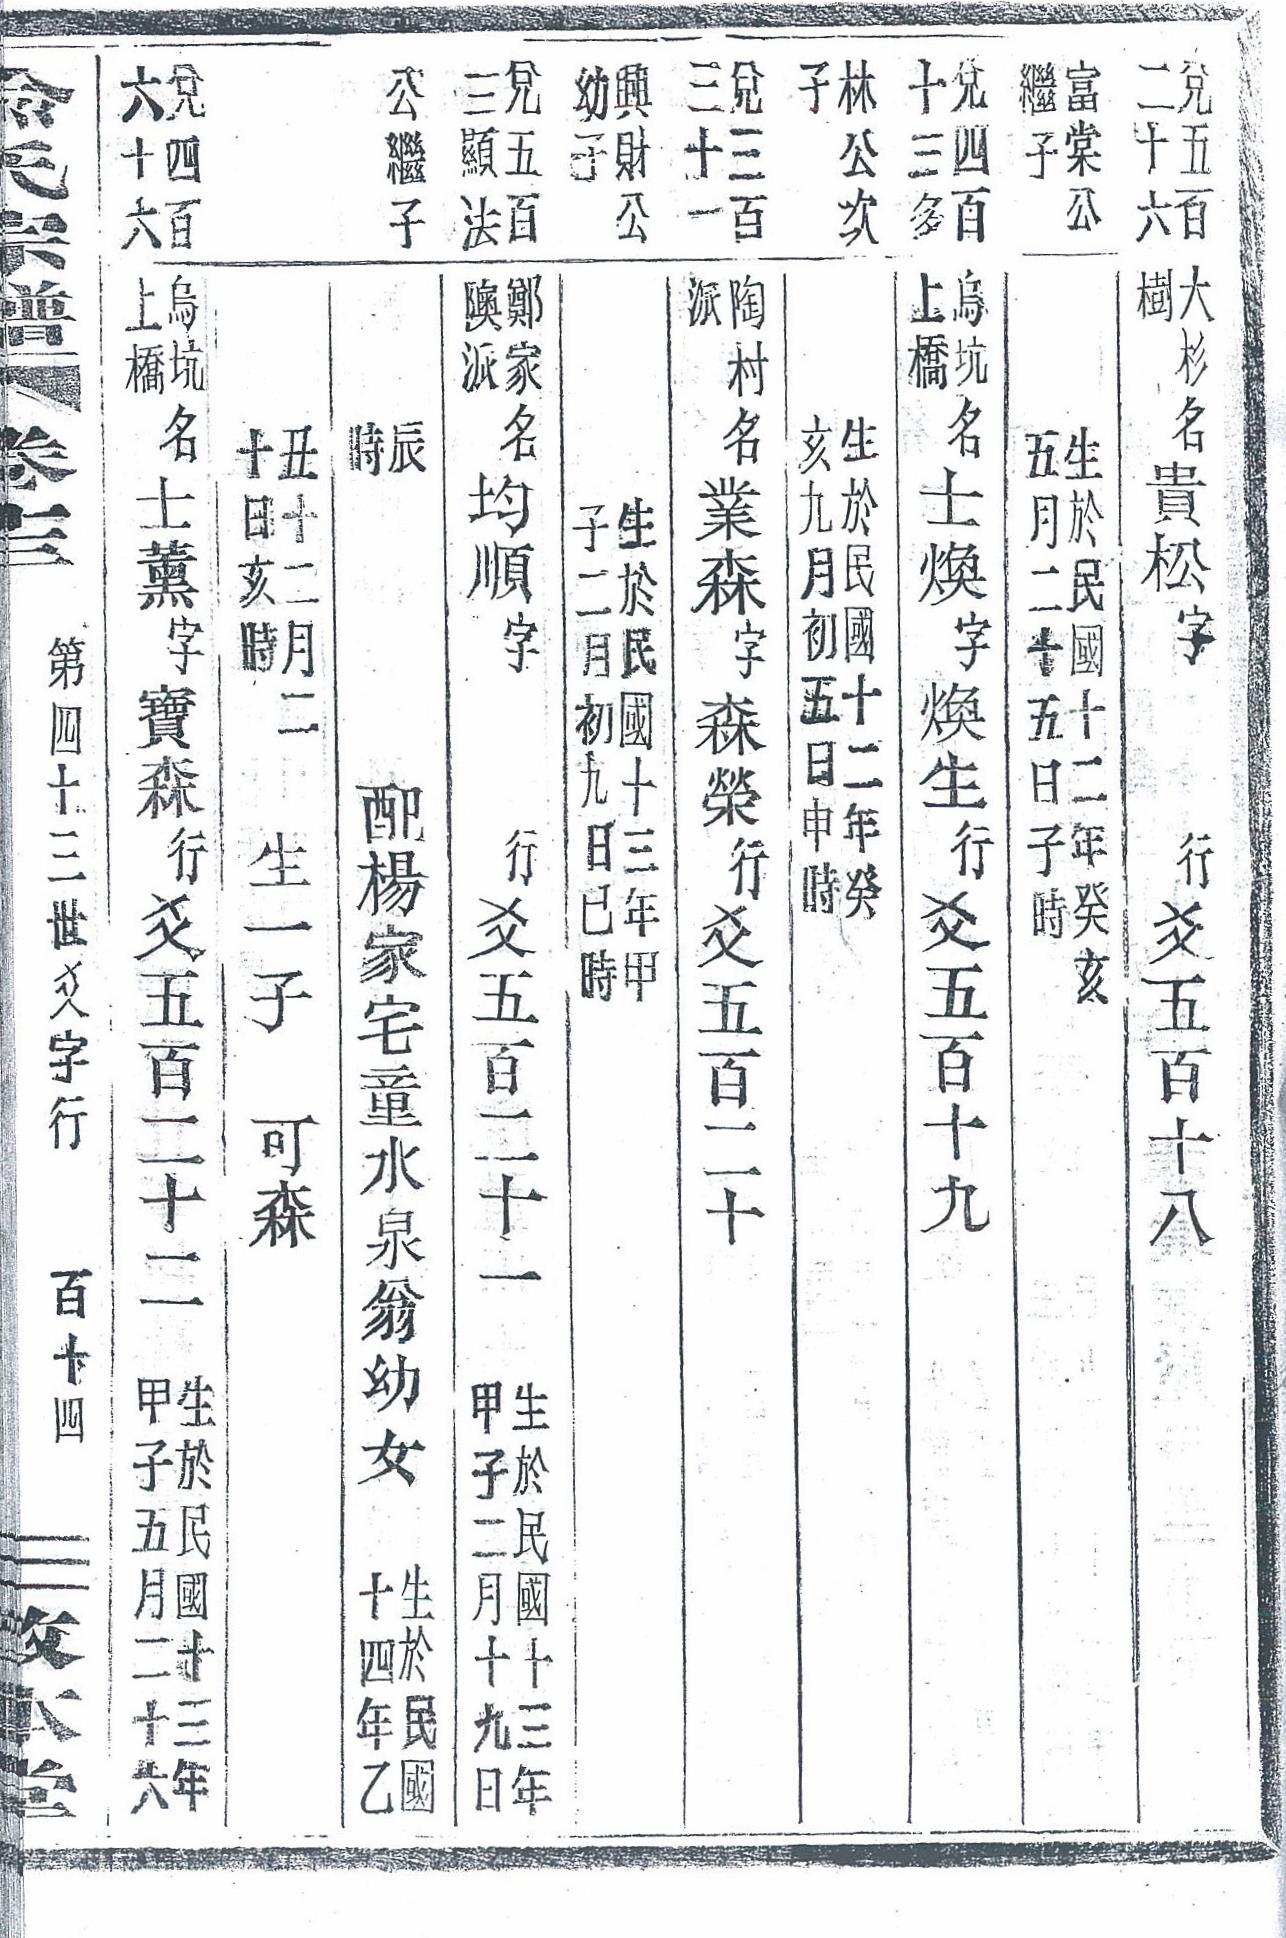 兌五百
二十六
大杉
樹
名貴松字
行爻五百十八
富棠公
繼子
生於民國十二年癸亥
五月二十五日子時
兌四百
十三多
烏坑
上橋
名士煥字煥生行爻五百十九
林公次
子
生於民國十二年癸
亥九月初五日申時
兌三百
三十一
陶村
派
名業森字森榮行爻五百二十
興財公
幼子
生於民國十三年甲
子二月初九日巳時
兌五百
三顯法
鄭家
隩派
名均順字
行爻五百二十一
生於民國十三年
甲子二月十九日
公繼子
辰
時
配楊家宅童水泉翁幼女
生於民國
十四年乙
丑十二月二
十日亥時
生一子 可森
兌四百
六十六
烏坑
上橋
名士薰字寶森行爻五百二十二
生於民國十三年
甲子五月二十六
氏宗譜 卷三
第四十三世爻字行 百十四